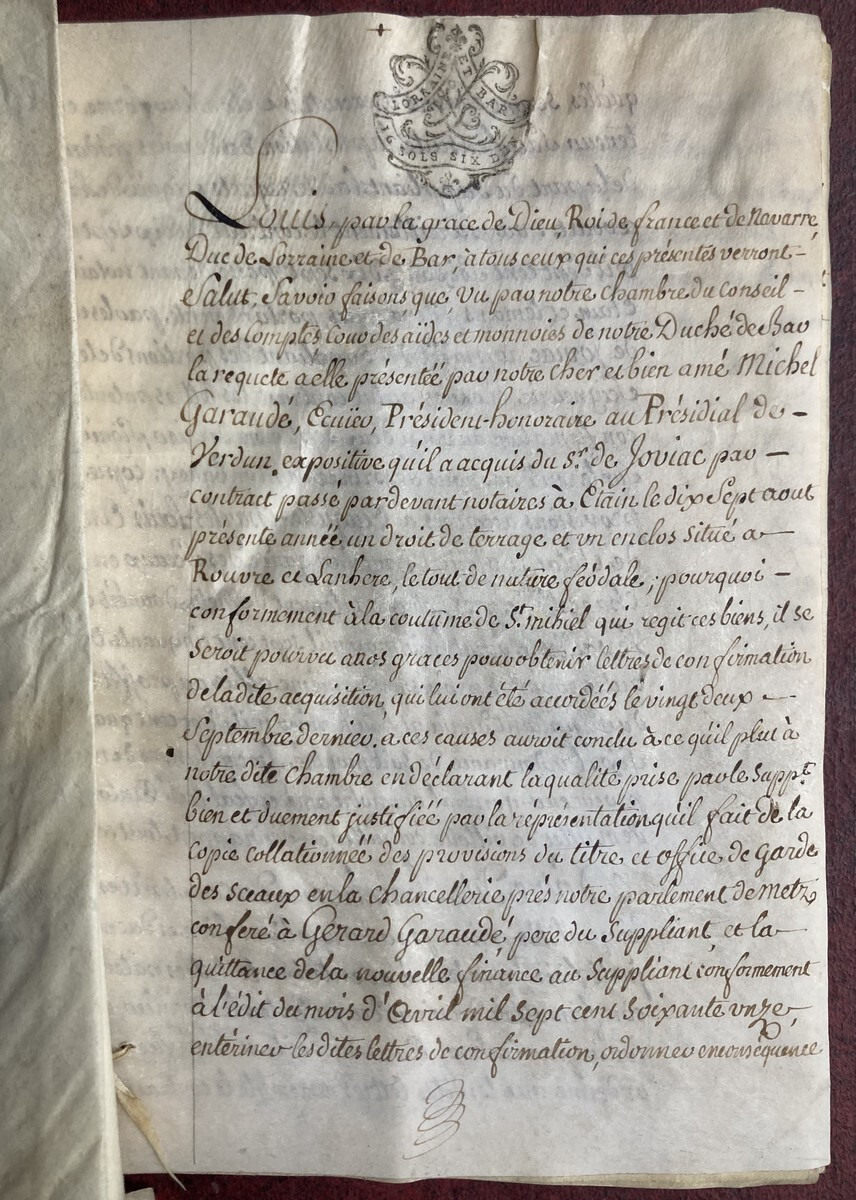 LORRAINE ET BAR
SOLS SIX DEN
Louis, par la grace de Dieu, Roi de france et de Navarre,
Duc de Lorraine et de Bar, à tous ceux qui ces présentes verront -
Salut, Savoir faisons, que, Vu par notre Chambre du Conseil -
et des Comptes Cour des aïdes et monnoies de notre Duché de Bar
la requete à elle présenteé par notre cher et bien amé Michel
Garaudé, Ecuïer, Président-honoraire au Présidial de -
Verdun, expositive qu'il a acquis du Sr. de Joviac par -
contract passé pardevant notaires à Etain le dix Sept aout
présente anneé un droit de terrage et vn enclos situé a -
Rouvre et Lanhere, le tout de nature féodale ; pourquoi -
conformement à la coutume de St. mihiel qui regit ces biens, il se
seroit pourvu a nos graces pour obtenir lettres de confirmation
de la dite acquisition, qui lui ont été accordéés le vingt deux -
Septembre dernier. à ces causes auroit conclu à ce qu'il plut à
notre dite Chambre en déclarant la qualité prise par le Suppt.
bien et duement justifiéé par la réprésentation qu'il fait de la
copie collationnéé des provisions du titre et office de Garde
des sceaux en la Chancellerie prés notre parlement de Metz
conferé à Gérard Garaudé, pere du Suppliant, et la -
quittance de la nouvelle finance au Suppliant conformement
à l'édit du mois d'Avril mil Sept cent Soixante vnze,
entériner les dites lettres de confirmation, ordonner en conséquence